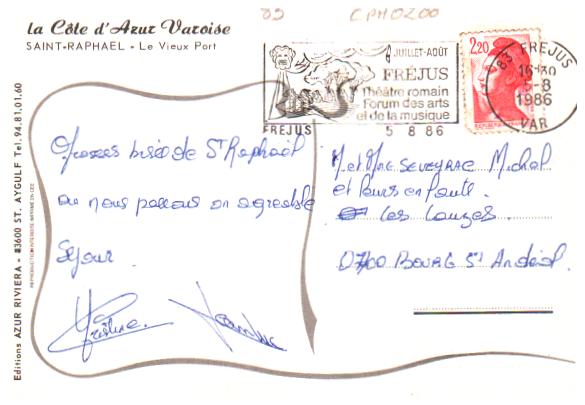 83
CPH0200
la Côte d'Azur Varoise
SAINT-RAPHAEL - Le Vieux Port
JUILLET-AOÛT
FRÉJUS
Théâtre romain
Forum des arts
et de la musique
FREJUS
5 8 86
2,20
83 FREJUS
16-30
5-8
1986
VAR
Grosses bises de St Raphaël
ou nous passons un agréable
Séjour.
Christine. Jean-Luc
M et Mme SEVEYRAC Michel
et leurs enfants.
Les Lauzes.
07700 BOURG St Andéol.
Editions AZUR RIVIERA - 83600 ST. AYGULF Tel. 94.81.01.60
REPRODUCTION INTERDITE